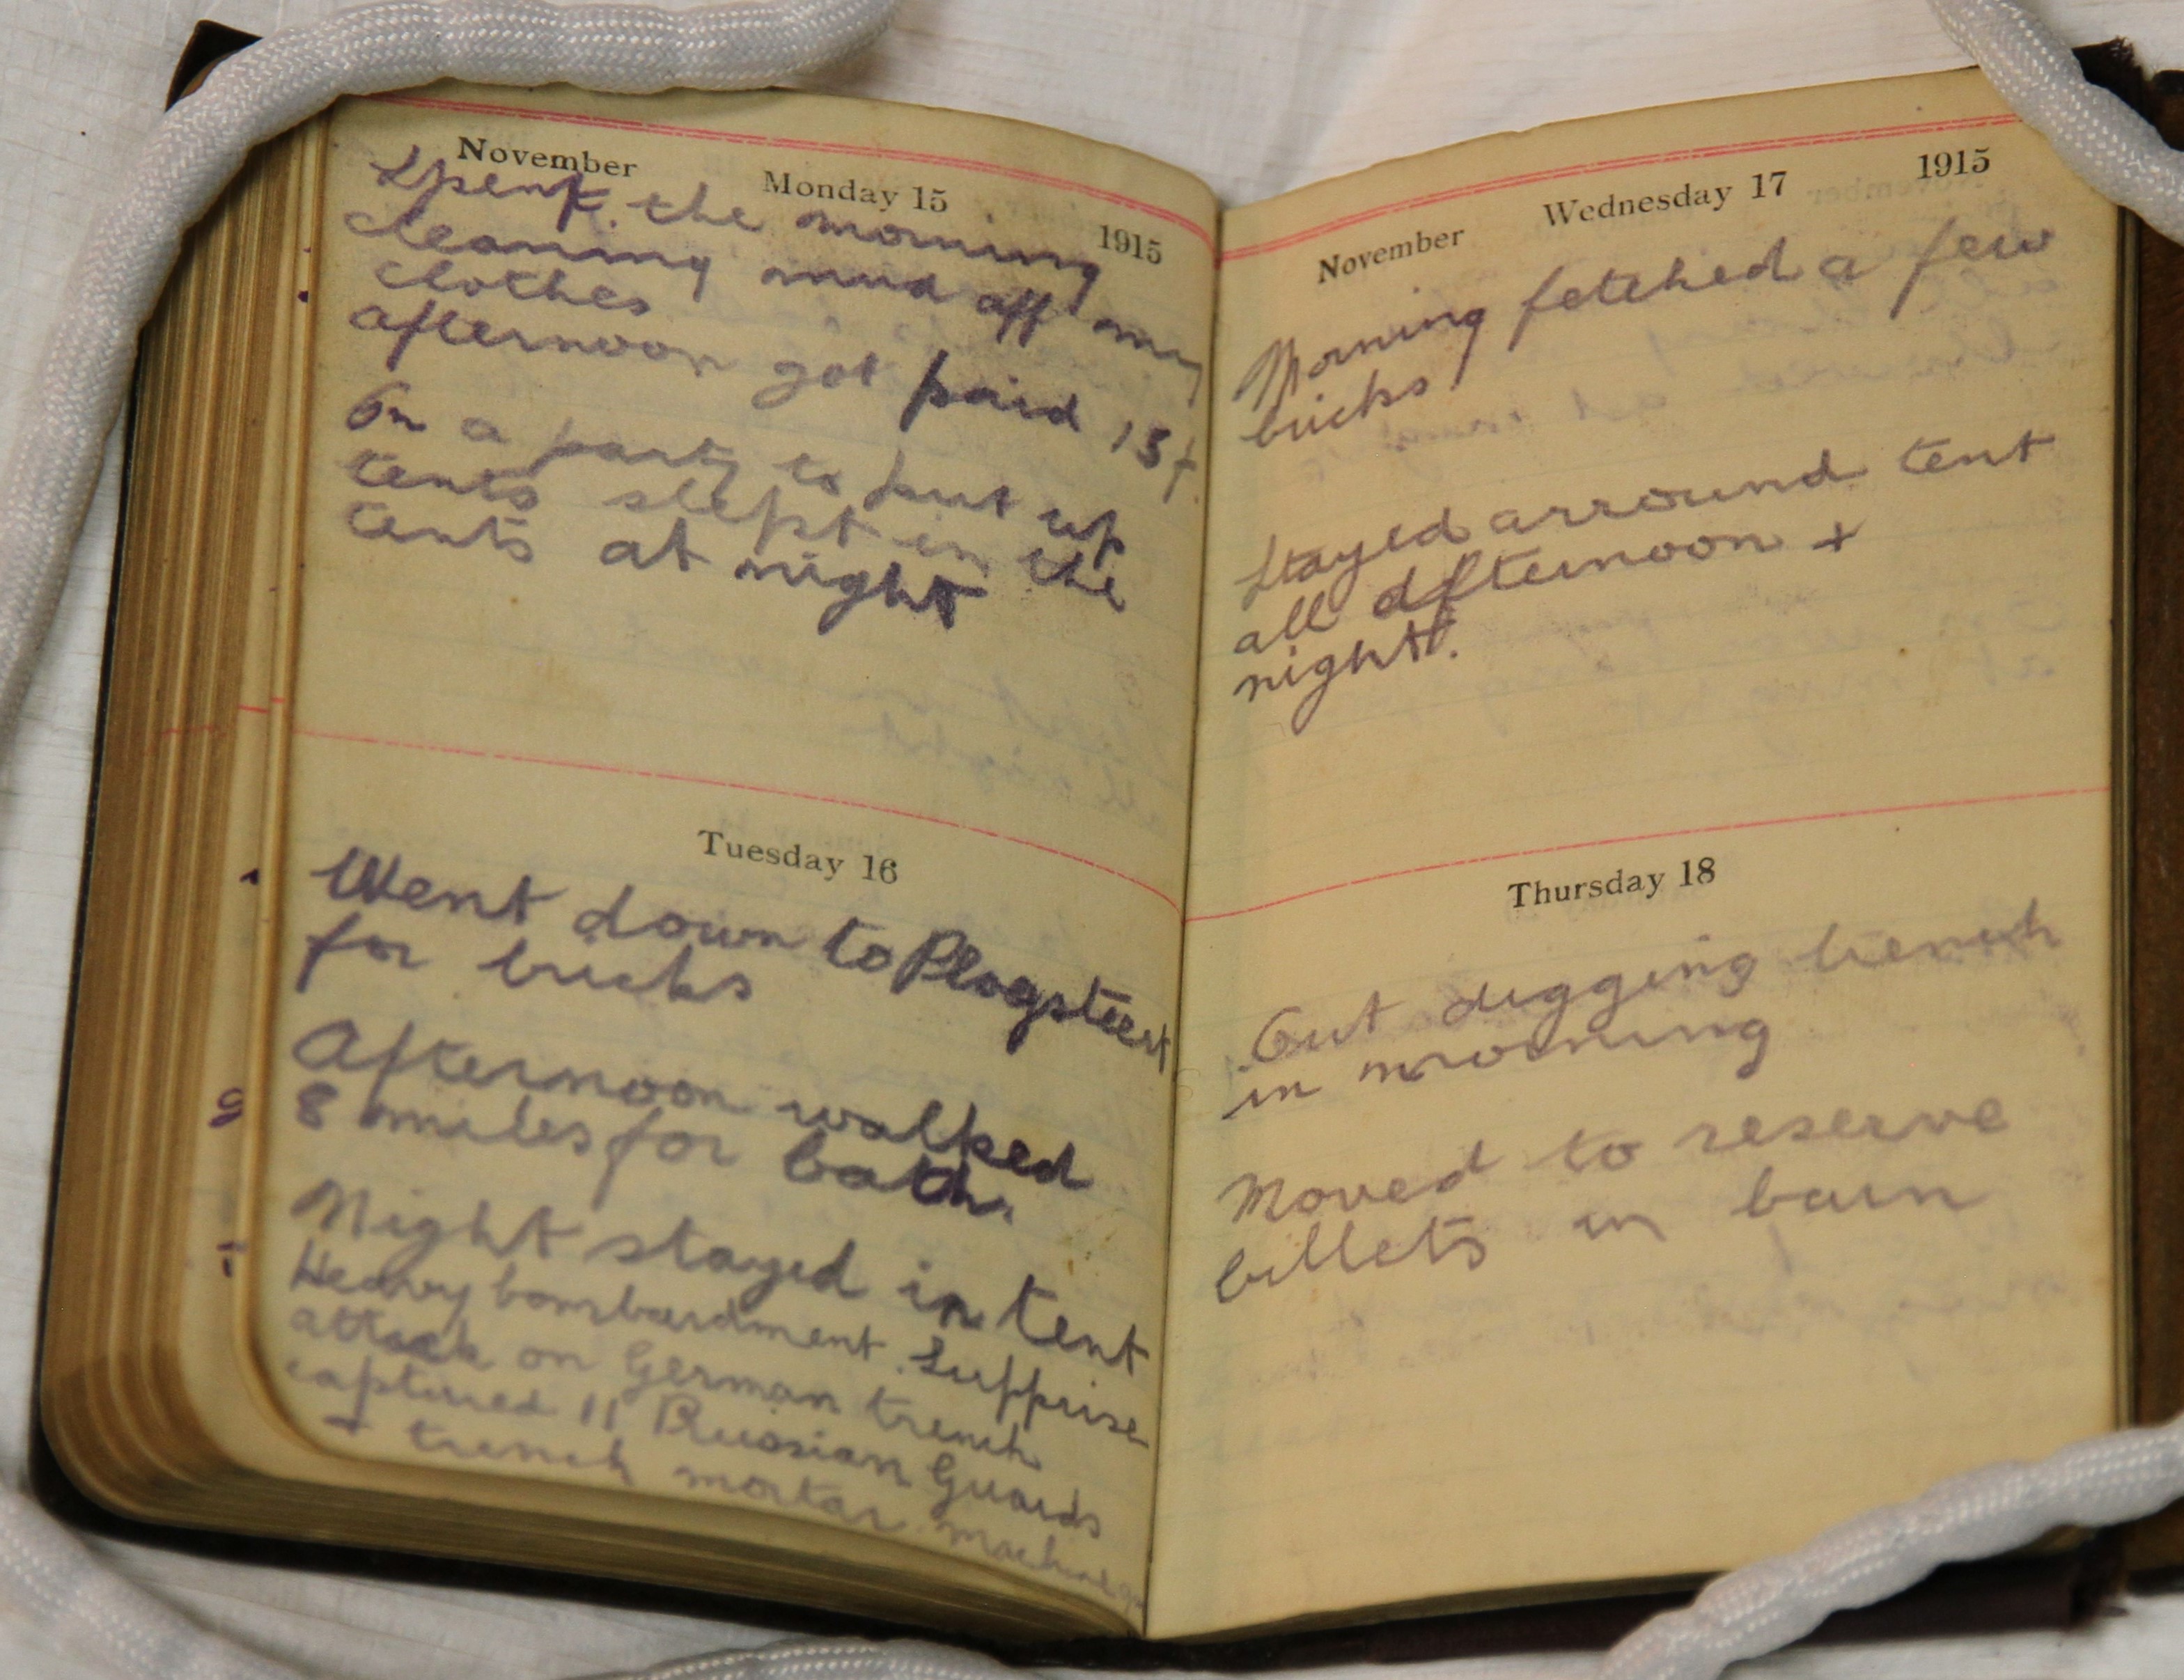 November Monday 15 1915
Spent the morning
cleaning mud off my
clothes
afternoon got paid 15f
On a party to put up
tents slept in the
tents at night
Tuesday 16
Went down to Plogsteert
for bricks
Afternoon walked
8 miles for bath.
Night stayed in tent
Heavy bombardment. Supprise
attack on German trench
captured 11 Prussian Guards
+ trench mortar machine
November Wednesday 17 1915
Morning fetched a few
bricks
Stayed arround tent
all afternoon +
night.
Thursday 18
Out digging trench
in morning
Moved to reserve
billets in barn